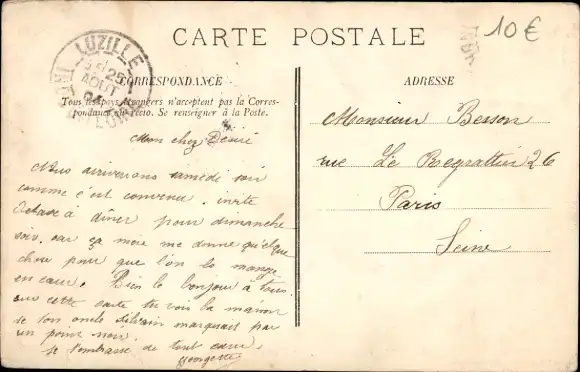 CARTE POSTALE
10€
LUZILLE
25
AOUT
CORRESPONDANCE
Tous les pays étrangers n'acceptent pas la Corres-
pondance au recto. Se renseigner à la Poste.
ADRESSE
Mon cher Désiré
Nous arriverons samedi soir
comme c'est convenu. invite
à dîner pour dimanche
soir, car ça me donne quelque
chose pour que l'on le mange
en cœur. Bien le bonjour à tous
sur cette carte tu vois la maison
de ton oncle Silvain marquait par
un point noir.
Je t'embrasse de tout cœur,
Georgette
Monsieur Besson
rue Le Regrattier 26
Paris
Seine